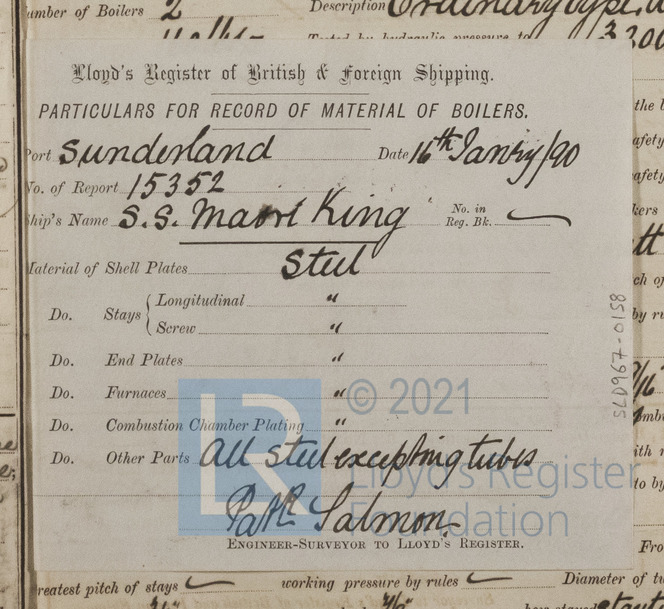 umber of Boilers 2 Description Ordinary type,
Tested by hydraulic pressure to
Lloyd's Register of British & Foreign Shipping.
PARTICULARS FOR RECORD OF MATERIAL OF BOILERS.
Port Sunderland Date 16th Janry/90
No. of Report 15352
Ship's Name S.S. Maori King No. in Reg. Bk.
Material of Shell Plates Steel
Do. Stays { Longitudinal "
Screw "
Do. End Plates "
Do. Furnaces "
Do. Combustion Chamber Plating "
Do. Other Parts All steel excepting tubes
Salmon
ENGINEER-SURVEYOR TO LLOYD'S REGISTER.
SLD967-0158
© 2021
Lloyd's Register
Foundation
LR
reatest pitch of stays working pressure by rules Diameter of